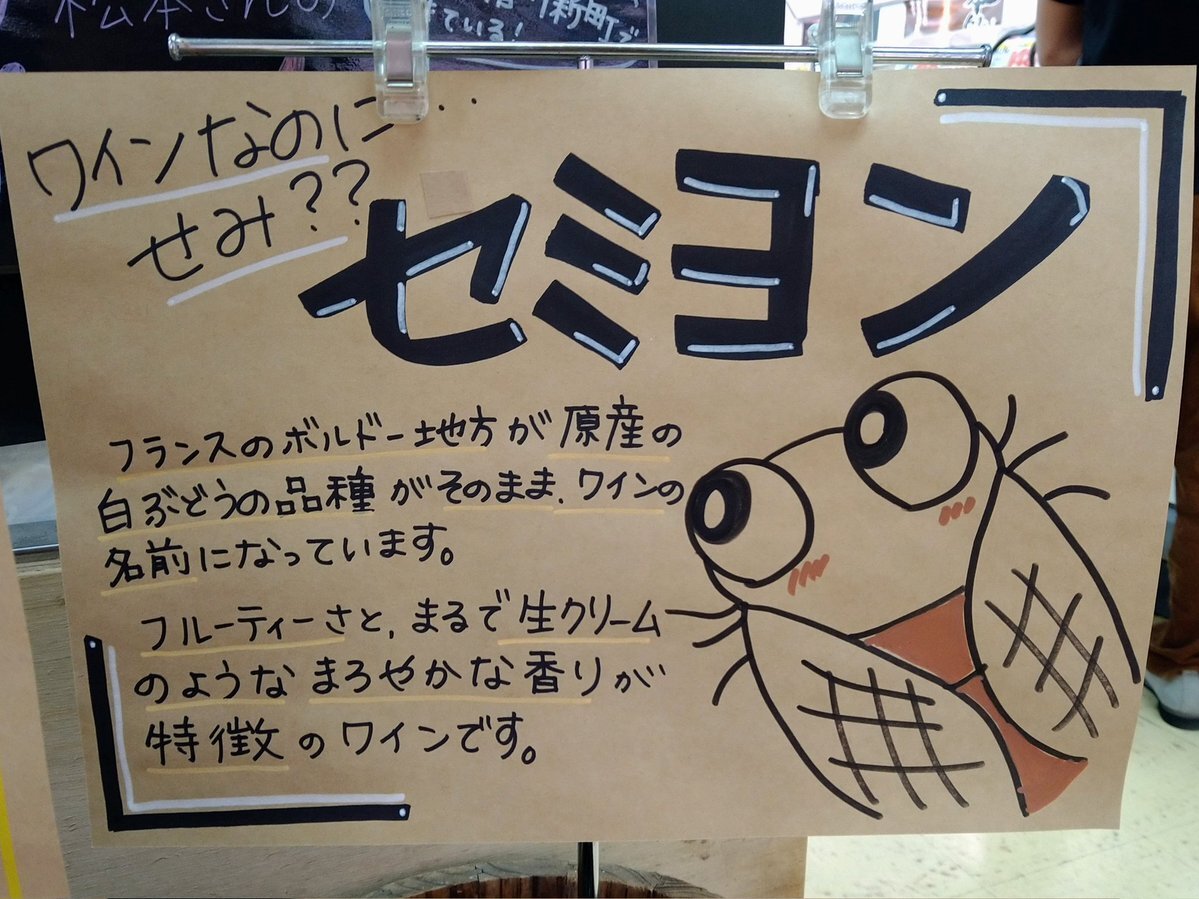 松本さんの
新町で
ている!
ワインなのに・・・
せみ??
セミヨン
フランスのボルドー地方が原産の
白ぶどうの品種がそのまま、ワインの
名前になっています。
フルーティーさと、まるで生クリーム
のようなまろやかな香りが
特徴のワインです。